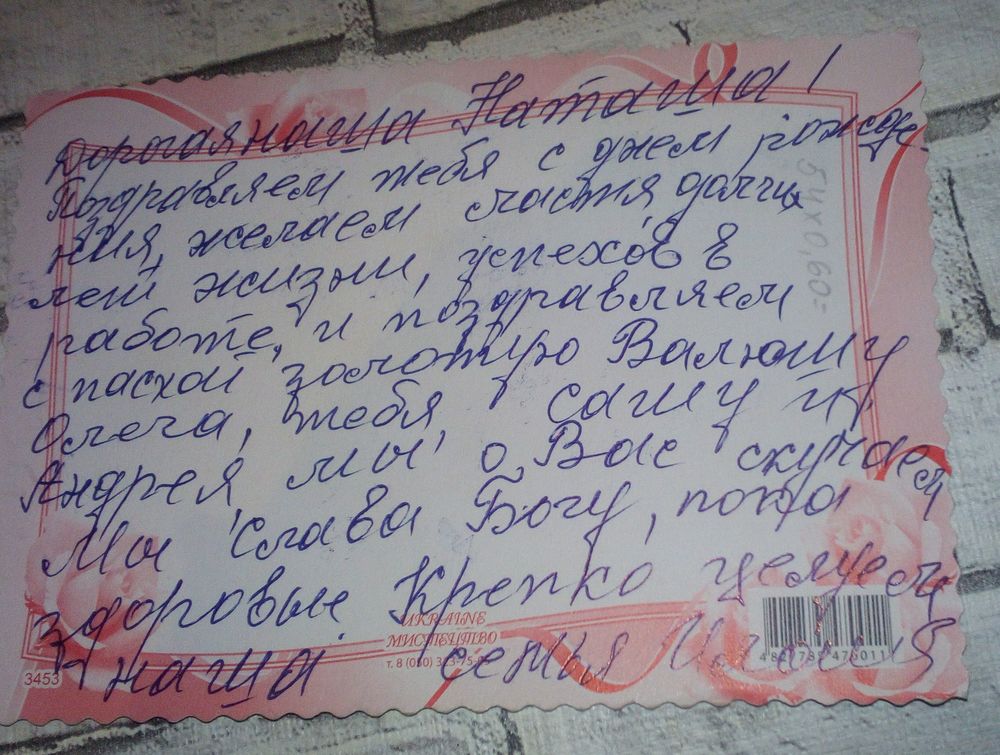 Дорогая наша Наташа!
Поздравляем тебя с днем рожде
ния, желаем счастя долгих
лет жизни, успехов в
работе, и поздравляем
с пасхой золотую Валюшу
Олега, тебя, сашу и
Андрея мы о Вас скучаем
Мы Слава Богу, пока
здоровые Крепко целуем
наша семья
54х0,60=
UKRAINE
МИСТЕЦТВО
3453